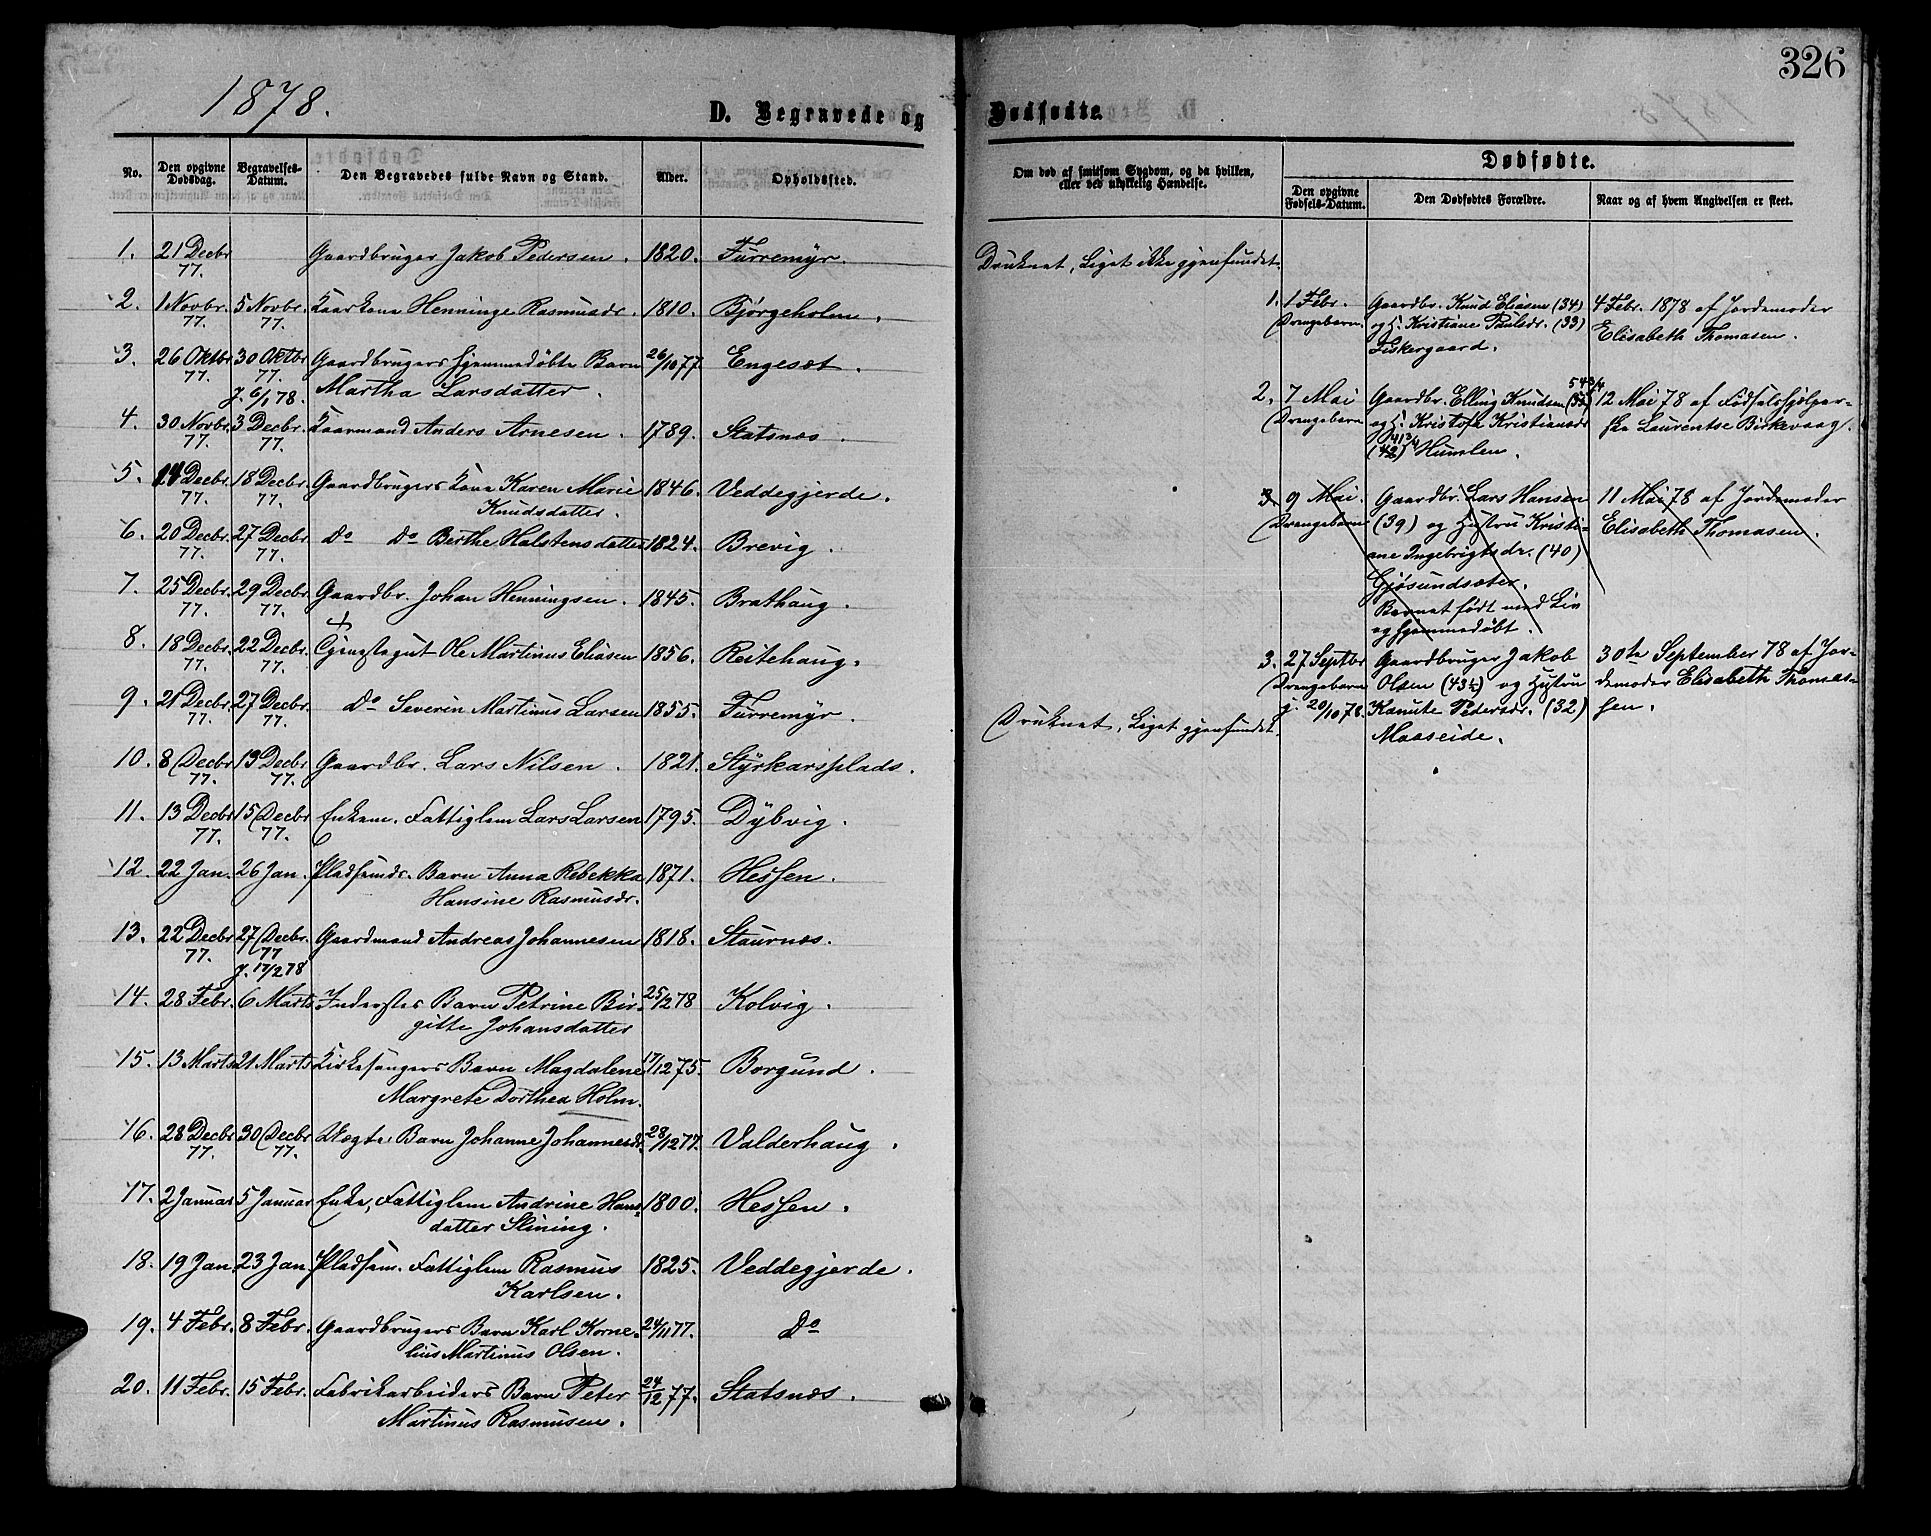 326
1878.
D. Begravede og Dødfødte.
No.
Den opgivne Dødsdag.
Begravelses-Datum.
Den Begravedes fulde Navn og Stand.
Alder.
Opholdssted.
Om død af smitsom Sygdom, og da hvilken,
eller ved ulykkelig Hændelse.
Dødfødte.
Den opgivne Fødsels-Datum.
Den Dødfødtes Forældre.
Naar og af hvem Angivelsen er skeet.
1. 21 Decbr 77. Gaardbruger Jakob Pedersen. 1820. Furremÿr. Druknet, Liget ikke gjenfundet.
2. 1 Novbr. 77. 5 Novbr. 77. Kaarkone Henninge Rasmusdr. 1810. Bjørgeholm.
3. 26 Oktbr. 77. 30 Oktbr 77. j. 6/1 78. Gaardbrugers hjemmedøbte Barn 26/10 77 Engesæt.
Martha Larsdatter.
4. 30 Novbr. 77. 3 Decbr. 77. Kaarmand Anders Arnesen. 1789. Statsnæs.
5. 14 Decbr. 77. 18 Decbr. 77. Gaardbrugers Kone Karen Marie 1846. Veddegjerde.
Knudsdatter.
6. 20 Decbr. 77. 27 Decbr. 77. Do Do Berthe Halstensdatter 1824. Brevig.
7. 25 Decbr. 77. 29 Decbr. 77. Gaardbr. Johan Henningsen. 1845. Brathaug.
8. 18 Decbr. 77. 22 Decbr. 77. Tjenestegut Ole Martinus Eliasen 1856. Reitehaug.
9. 21 Decbr. 77. 27 Decbr. 77. Do Severin Martinus Larsen 1855. Furremÿr. Druknet, Liget gjenfundet.
10. 8 Decbr 77. 13 Decbr 77. Gaardbr. Lars Nilsen. 1821. Stÿrkarsplads.
11. 13 Decbr 77. 15 Decbr 77. Enkem. Fattiglem Lars Larsen 1795. Dÿbvig.
12. 22 Jan. 26 Jan. Pladsmds. Barn Anna Rebekka 1871. Hessen.
Hansine Rasmusdr.
13. 22 Decbr 77. 27 Decbr. 77 j. 17/2 78 Gaardmand Andreas Johannesen 1818. Staurnæs.
14. 28 Febr. 6 Marts Inderstes Barn Petrine Bir- 25/2 78 Kolvig.
gitte Johansdatter
15. 13 Marts 21 Marts Kirkesangers Barn Magdalene 17/12 75. Borgund.
Margrete Dorthea Holm.
16. 28 Decbr 77. 30 Decbr 77. Uægte Barn Johanne Johannesdr. 28/12 77. Valderhaug.
17. 2 Januar 5 Januar Enke, Fattiglem Andrine Hans- 1800. Hessen.
datter Slining.
18. 19 Jan. 23 Jan. Pladsem. Fattiglem Rasmus 1825. Veddegjerde.
Karlsen.
19. 4 Febr. 8 Febr. Gaardbrugers Barn Karl Korne- 24/11 77. Do
lius Martinus Olsen.
20. 11 Febr. 15 Febr. Fabrikarbeiders Barn Peter 24/12 77. Statsnæs.
Martinus Rasmusen.
1. 1 Febr. Gaardbr. Knud Eliasen (34) 4 Febr. 1878 af Jordemoder
Drengebarn og H. Kristiane Paulsdr. (33) Elisabeth Thomasen.
Fiskergaard.
2. 7 Mai Gaardbr. Elling Knudsen 12 Mai 78 af Fødselshjælper-
Drengebarn og H. Kristofa Kristiansdr ske Laurentse Birkevaag.
(42) 41 3/4 Humlen.
3. 9 Mai. Gaardbr. Lars Hansen 11 Mai 78 af Jordemoder
Drengebarn (39) og Hustru Kristi- Elisabeth Thomasen.
ane Ingebrigtsdr. (40)
Gjøsundsæter.
Barnet født med Liv
og hjemmedøbt.
3. 27 Septbr Gaardbruger Jakob 30te September 78 af Jor-
Drengebarn Olsen (43½) og Hustru demoder Elisabeth Thomas-
j. 20/10 78. Kanute Pedersdr. (32) sen.
Maaseide.